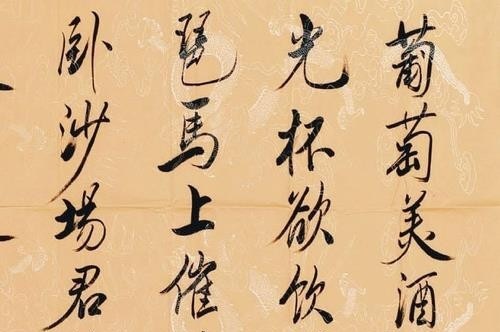 葡萄美酒
光杯欲饮
琶馬上催
卧沙場君